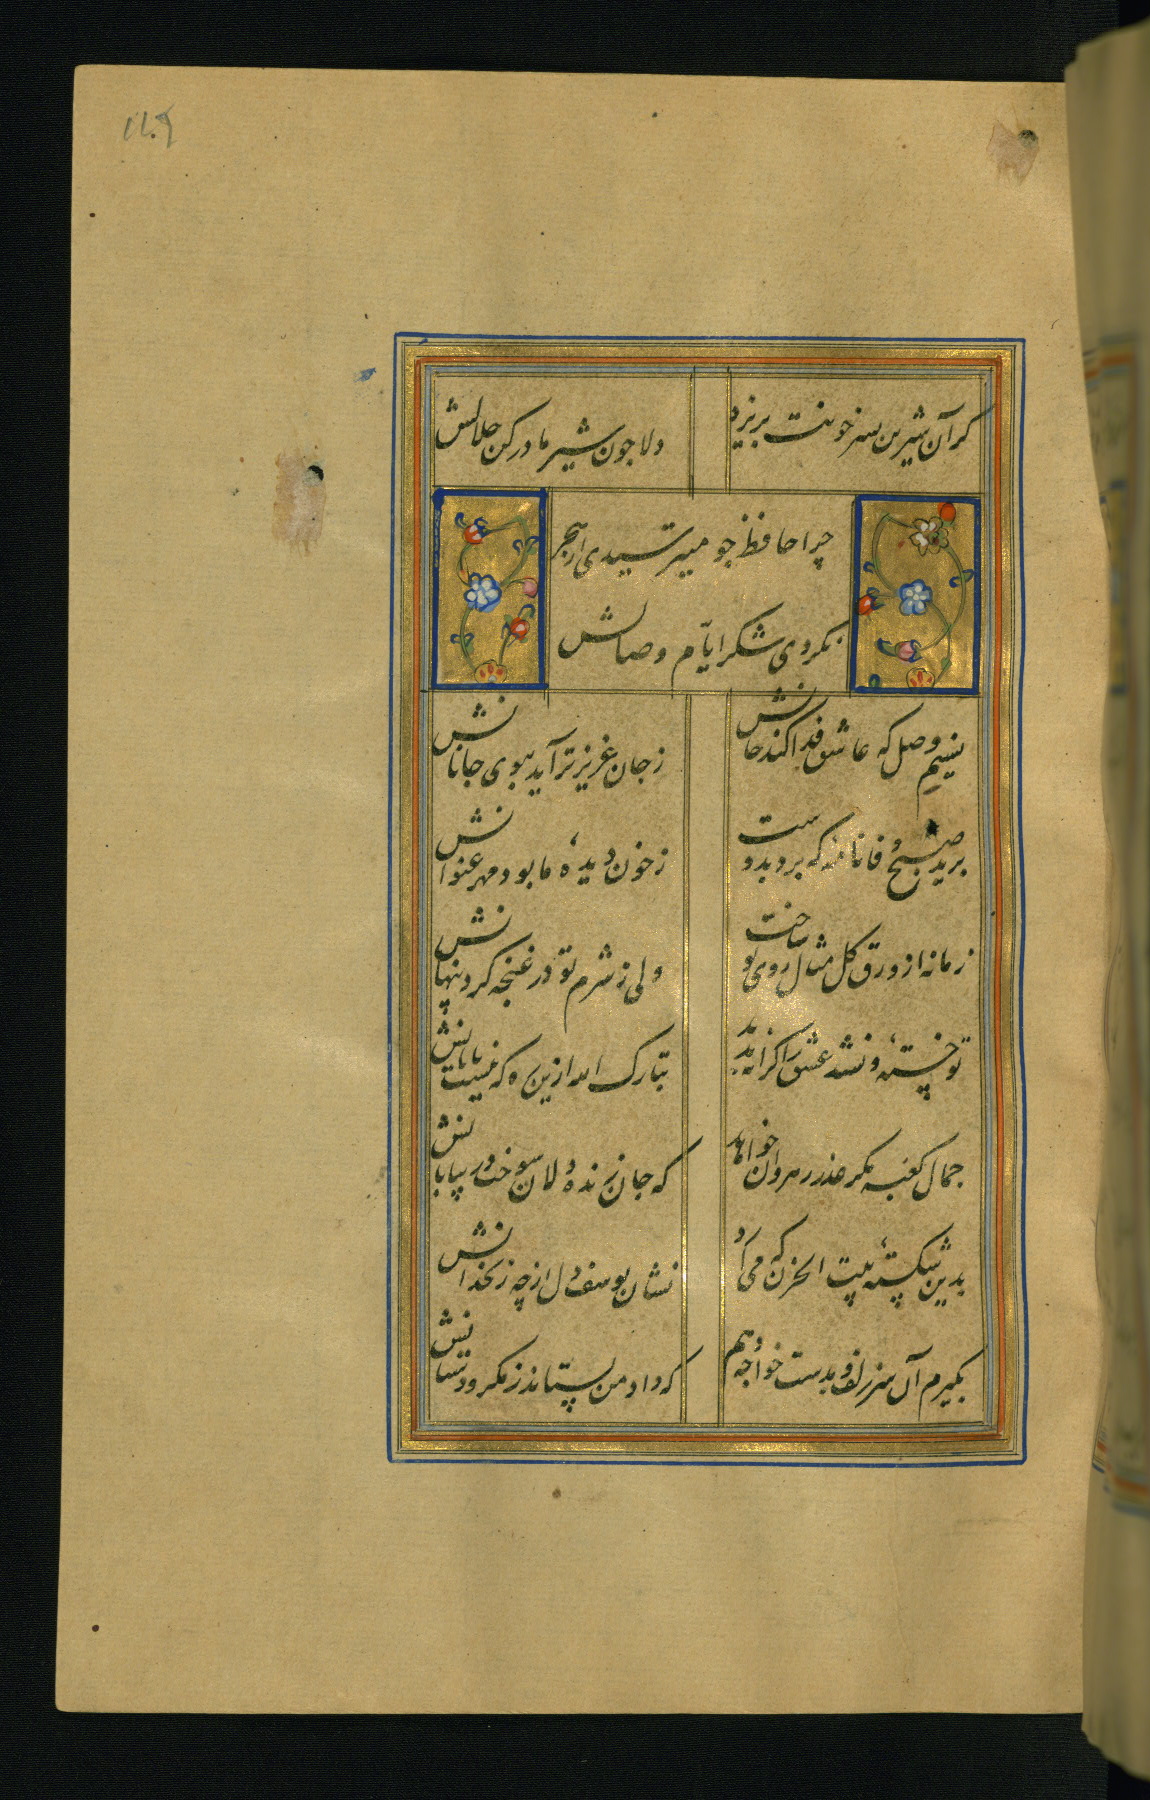 کر آن شیرین پسر خونت بریزد
دلا چون شیر مادر کن حلالش
چرا حافظ چو میترسیدی از هجر
نکردی شکر ایام وصالش
نسیم وصل که عاشق فدا کند جانش
ز جان عزیزتر آید ببوی جانانش
برید صبح وفا نامه که برد بدوست
ز خون دیدهٔ ما بود مهر عنوانش
زمانه از ورق کل مثال روی تو ساخت
ولی ز شرم تو در غنچه کرد پنهانش
تو خستهٔ و نشد عشق را کرانه پدید
تبارک الله ازین ره که نیست پایانش
جمال کعبه مکر عذر رهروان خواهد
که جان زنده دلان سوخت در بیابانش
بدین شکستهٔ بیت الحزن که می آرد
نشان یوسف دل از چه زنخدانش
بکیرم آن سر زلف و بدست خواجه دهم
که داد من بستاند ز مکر و دستانش